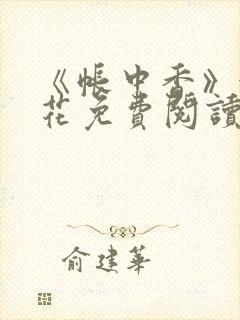 《帳中香》
花免費閱讀
俞建華